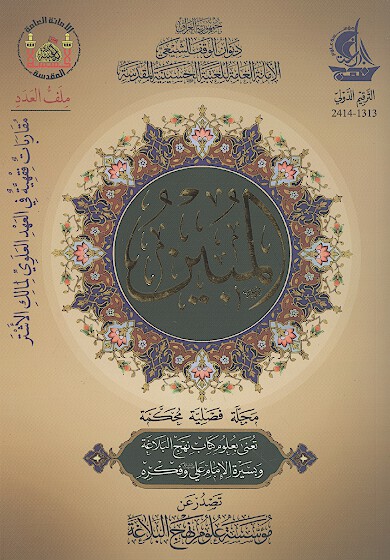 جمهورية العراق
ديوان الوقف الشيعي
الأمانة العامة للعتبة الحسينية المقدسة
الأمانة العامة
المقدسة
الترقيم الدولي
2414-1313
ملف العدد
مقاربات فقهية في العهد العلوي لمالك الأشتر
المبين
مجلة فصلية محكمة
تعنى بعلوم كتاب نهج البلاغة
وبسيرة الإمام علي وفكره
تصدر عن
مؤسسة علوم نهج البلاغة